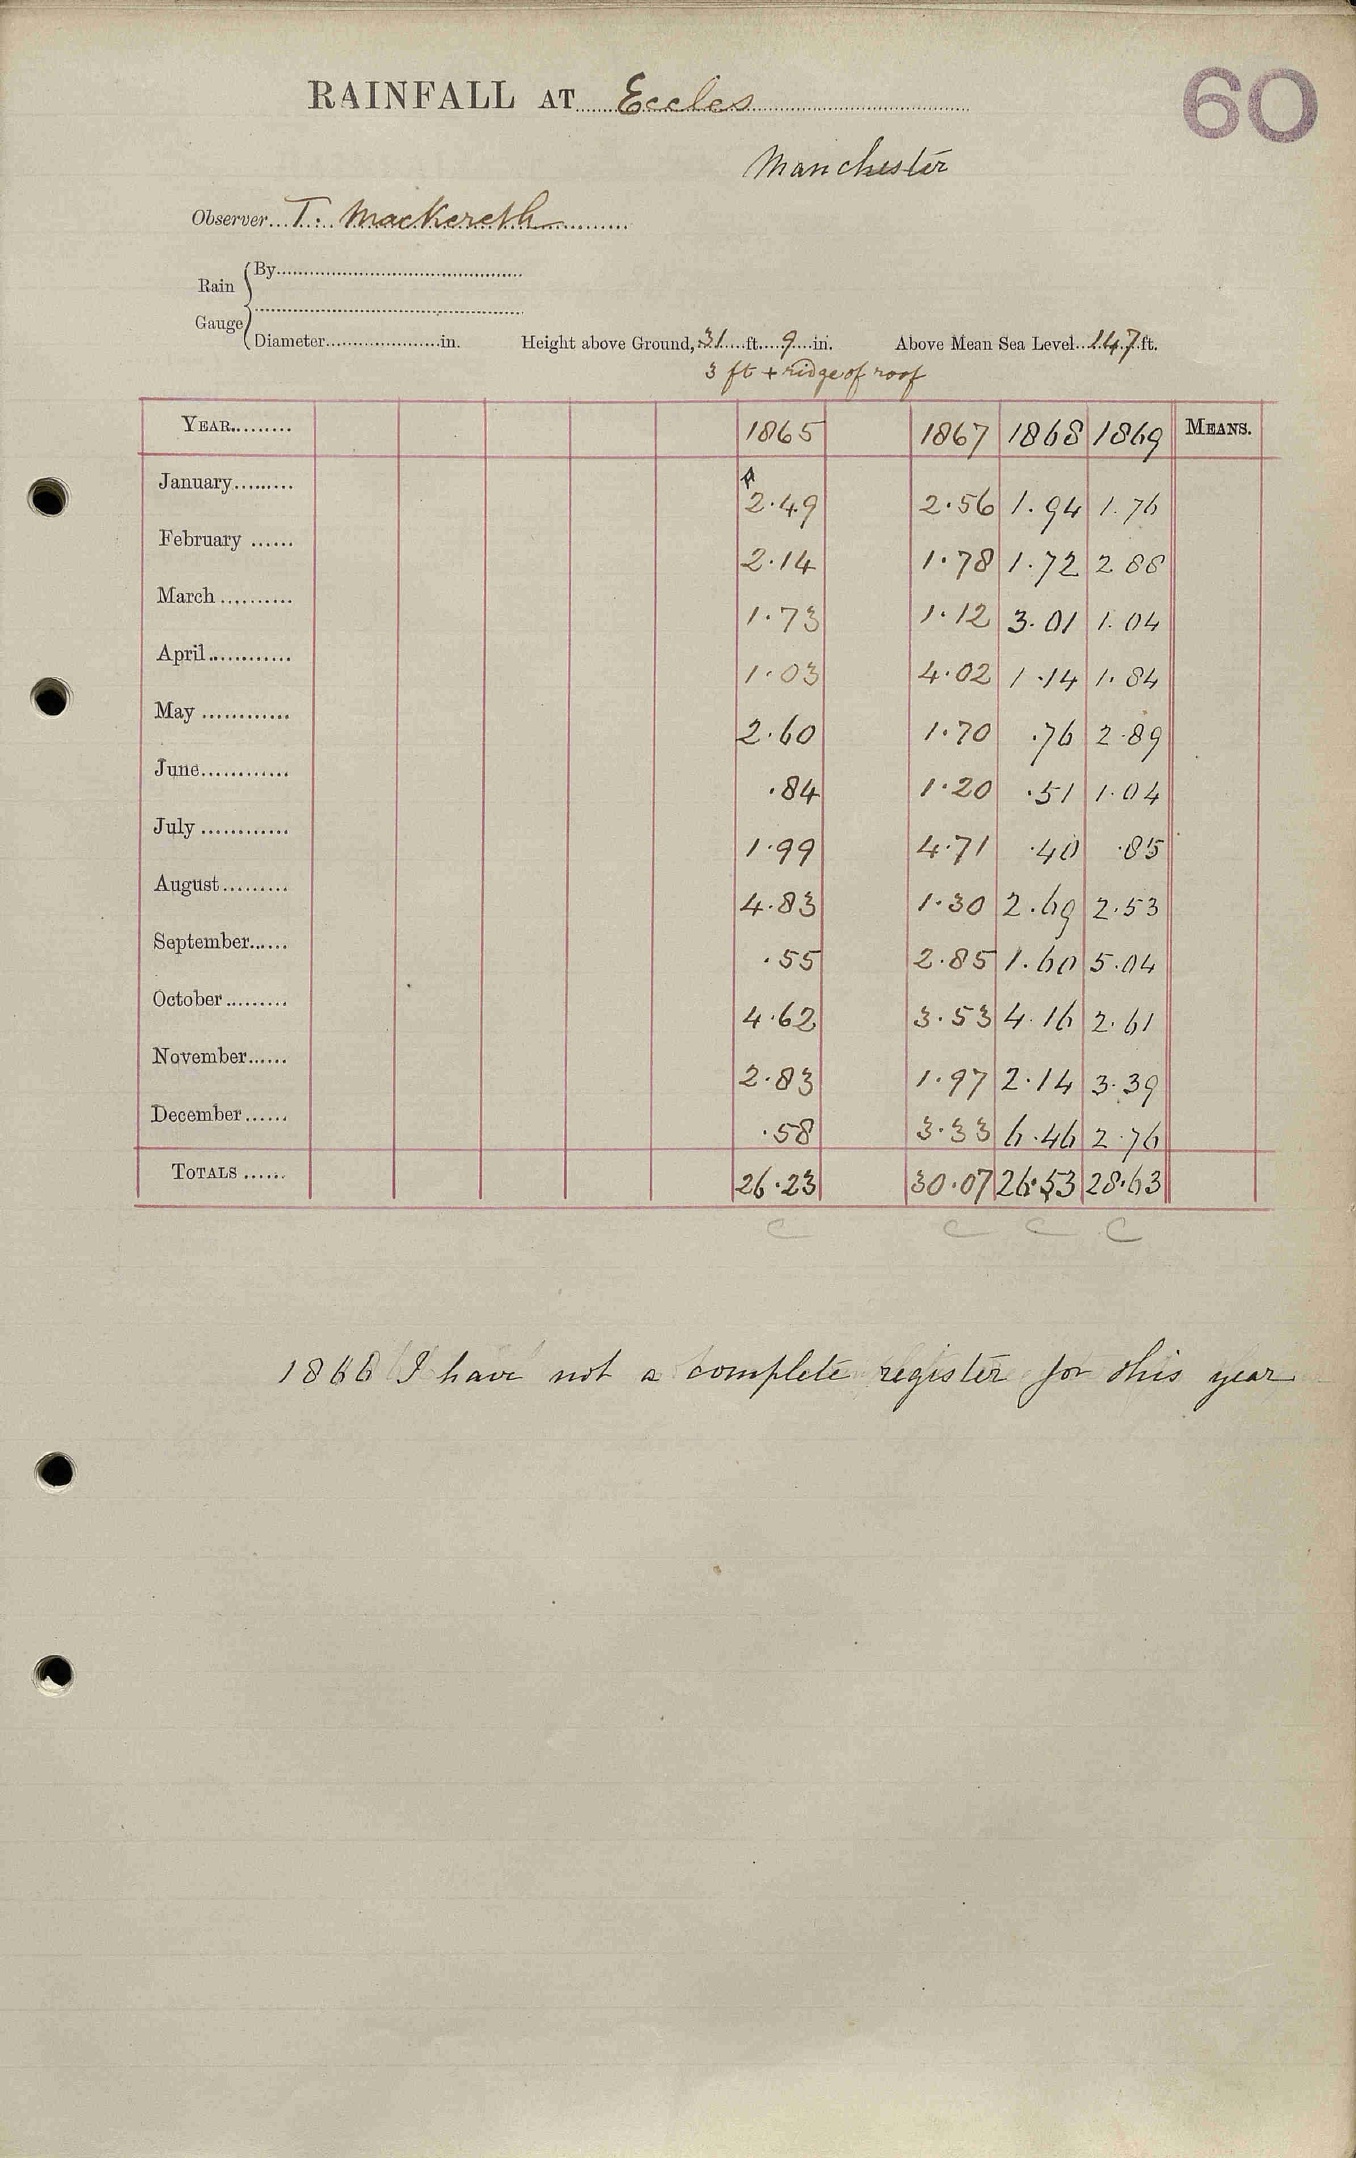 60
RAINFALL AT Eccles
Manchester
Observer T. Mackereth
Rain Gauge
By
Diameter in. Height above Ground, 31 ft. 9 in. Above Mean Sea Level 147 ft.
3 ft + ridge of roof
YEAR 1865 1867 1868 1869 MEANS.
January 2.49 2.56 1.94 1.76
February 2.14 1.78 1.72 2.88
March 1.73 1.12 3.01 1.04
April 1.03 4.02 1.14 1.84
May 2.60 1.70 .76 2.89
June .84 1.20 .51 1.04
July 1.99 4.71 .40 .85
August 4.83 1.30 2.69 2.53
September .55 2.85 1.60 5.04
October 4.62 3.53 4.16 2.61
November 2.83 1.97 2.14 3.39
December .58 3.33 6.46 2.76
TOTALS 26.23 30.07 26.53 28.63
C C C C
1866 I have not a complete register for this year